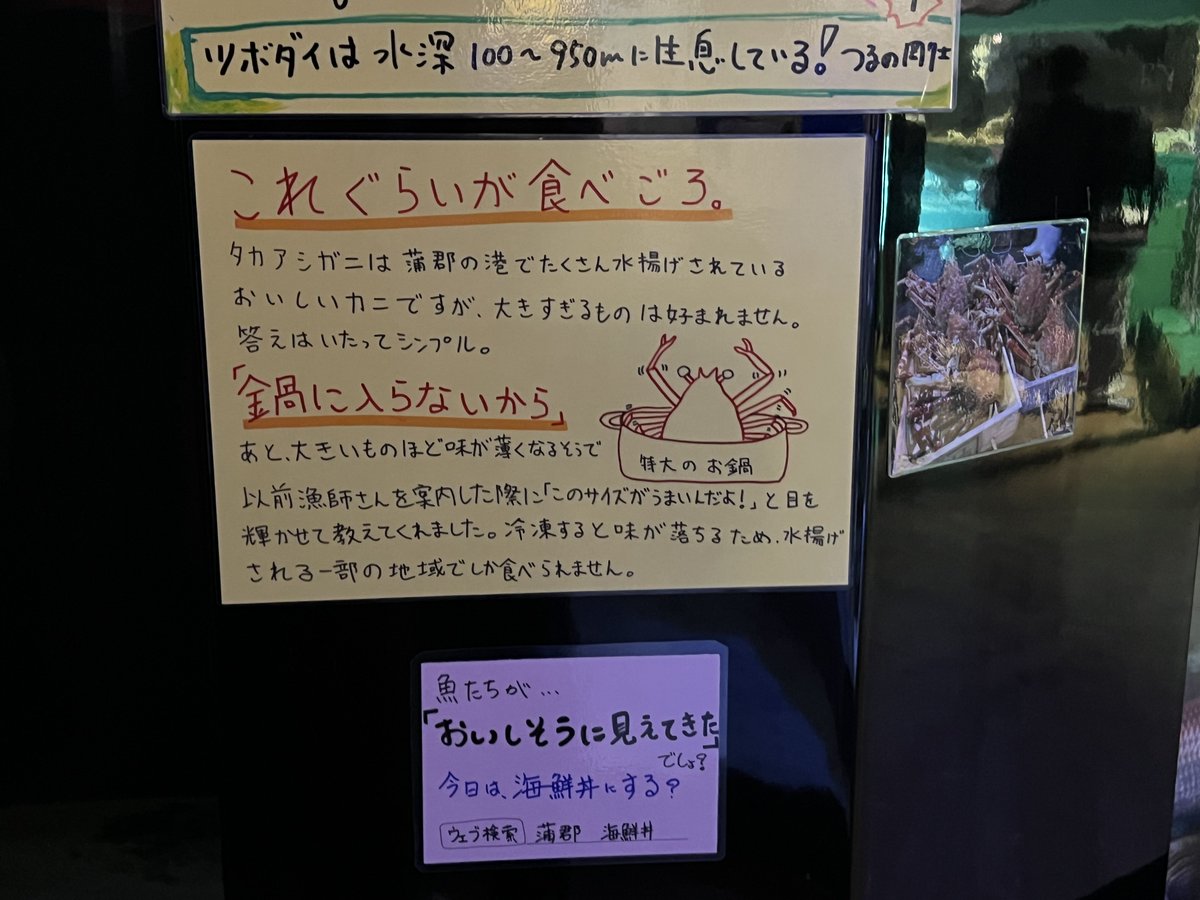 ツボダイは水深100〜950mに生息している!
これぐらいが食べごろ。
タカアシガニは蒲郡の港でたくさん水揚げされている
おいしいカニですが、大きすぎるものは好まれません。
答えはいたってシンプル。
「金鍋に入らないから」
特大のお鍋
あと、大きいものほど味が薄くなるそうで
以前漁師さんを案内した際に「このサイズがうまいんだよ!」と目を
輝かせて教えてくれました。冷凍すると味が落ちるため、水揚げ
される一部の地域でしか食べられません。
魚たちが…
「おいしそうに見えてきた」
でしょ?
今日は、海鮮丼にする?
ウェブ検索 蒲郡 海鮮丼